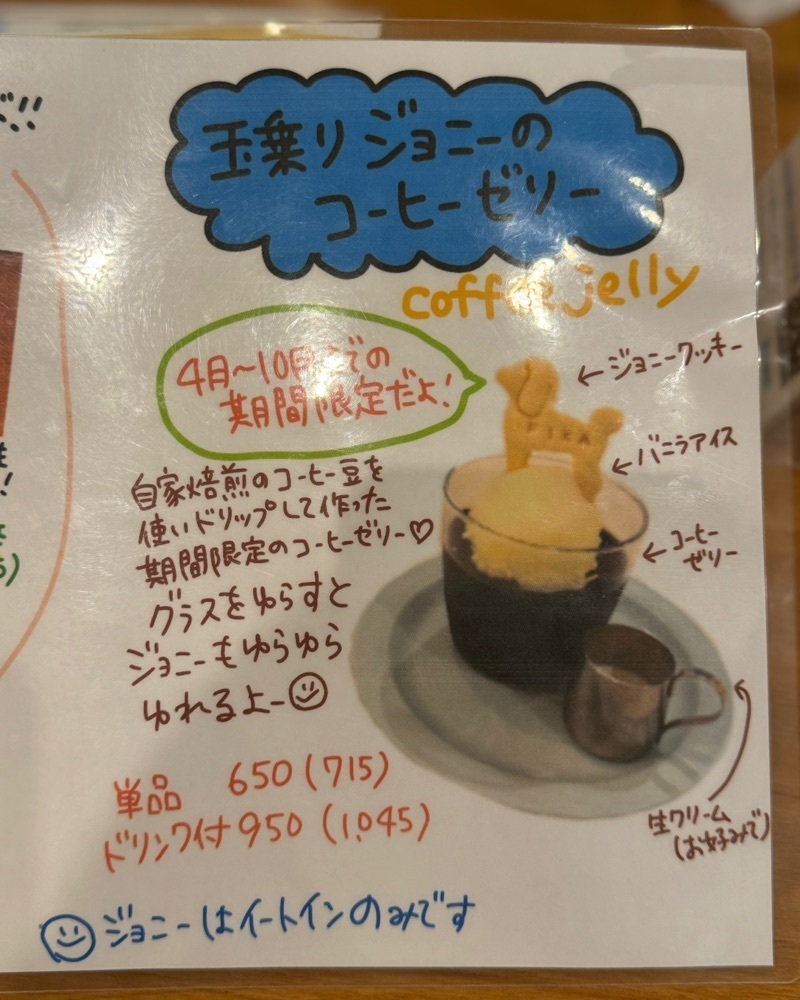 玉乗りジョニーの
コーヒーゼリー
coffee jelly
4月~10月までの
期間限定だよ!
←ジョニークッキー
FIKA
←バニラアイス
←コーヒー
ゼリー
自家焙煎のコーヒー豆を
使いドリップして作った
期間限定のコーヒーゼリー♡
グラスをゆらすと
ジョニーもゆらゆら
ゆれるよー☺
生クリーム
(お好みで)
単品 650(715)
ドリンク付 950(1,045)
☺ジョニーはイートインのみです